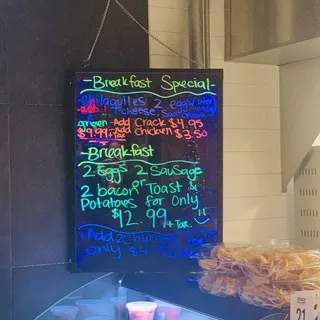 -Breakfast Special-
Chilaquiles 2 eggs any
red. ! + cheese, sour
green -Add Crack $4.95
$9.99 + Tax -Add Chicken $3.50
-Breakfast
2 Eggs 2 Sausage
2 bacon or Toast &
Potatoes for Only
$12.99 + Tax.
Add 2 for
only $
21